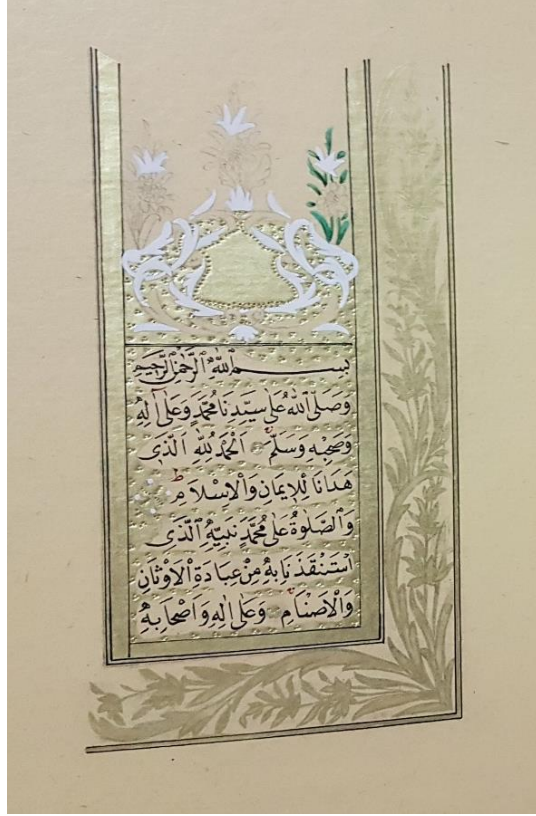 بِسْمِ ٱللّٰهِ ٱلرَّحْمٰنِ ٱلرَّحِيمِ
وَصَلَّى ٱللّٰهُ عَلٰى سَيِّدِنَا مُحَمَّدٍ وَعَلٰى اٰلِهِ
وَصَحْبِهِ وَسَلَّمَ اَلْحَمْدُ لِلّٰهِ الَّذِى
هَدَانَا لِلْاِيمَانِ وَالْاِسْلَامِ
وَالصَّلٰوةُ عَلٰى مُحَمَّدٍ نَبِيِّهِ الَّذِى
اسْتَنْقَذَنَا بِهِ مِنْ عِبَادَةِ الْاَوْثَانِ
وَالْاَصْنَامِ وَعَلٰى اٰلِهِ وَاَصْحَابِهِ